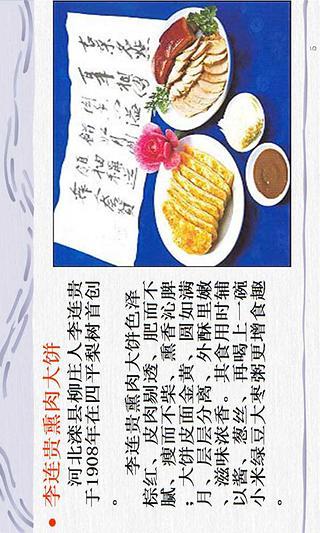 • 李连贵熏肉大饼
河北滦县柳庄人李连贵
于1908年在四平梨树首创
。
李连贵熏肉大饼色泽
棕红、皮肉剔透、肥而不
腻、瘦而不柴、熏香沁脾
；大饼皮面金黄、圆如满
月、层层分离、外酥里嫩
、滋味浓香。其食用时辅
以酱、葱丝、再喝上一碗
小米绿豆大枣粥更增食趣
。